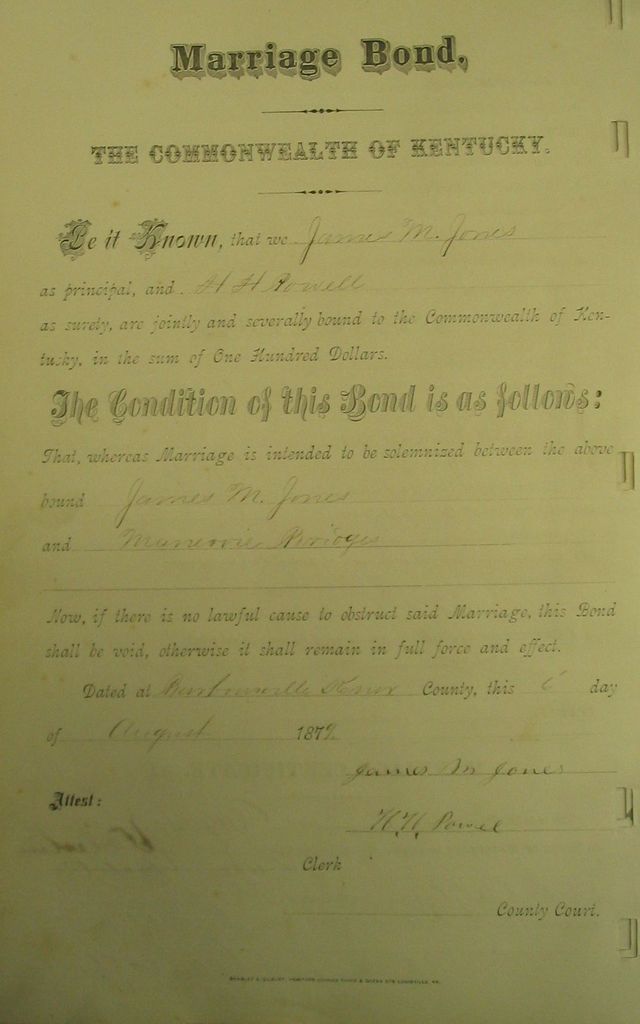 Marriage Bond.
THE COMMONWEALTH OF KENTUCKY.
Be it Known, that we James M. Jones
as principal, and H H Powell
as surety, are jointly and severally bound to the Commonwealth of Ken-
tucky, in the sum of One Hundred Dollars.
The Condition of this Bond is as follows:
That, whereas Marriage is intended to be solemnized between the above
bound James M. Jones
and Munervie Bridges
Now, if there is no lawful cause to obstruct said Marriage, this Bond
shall be void, otherwise it shall remain in full force and effect.
Dated at Barbourville Knox County, this 6 day
of August 1879
James M Jones
Attest:
H. H. Powel
Clerk
County Court.